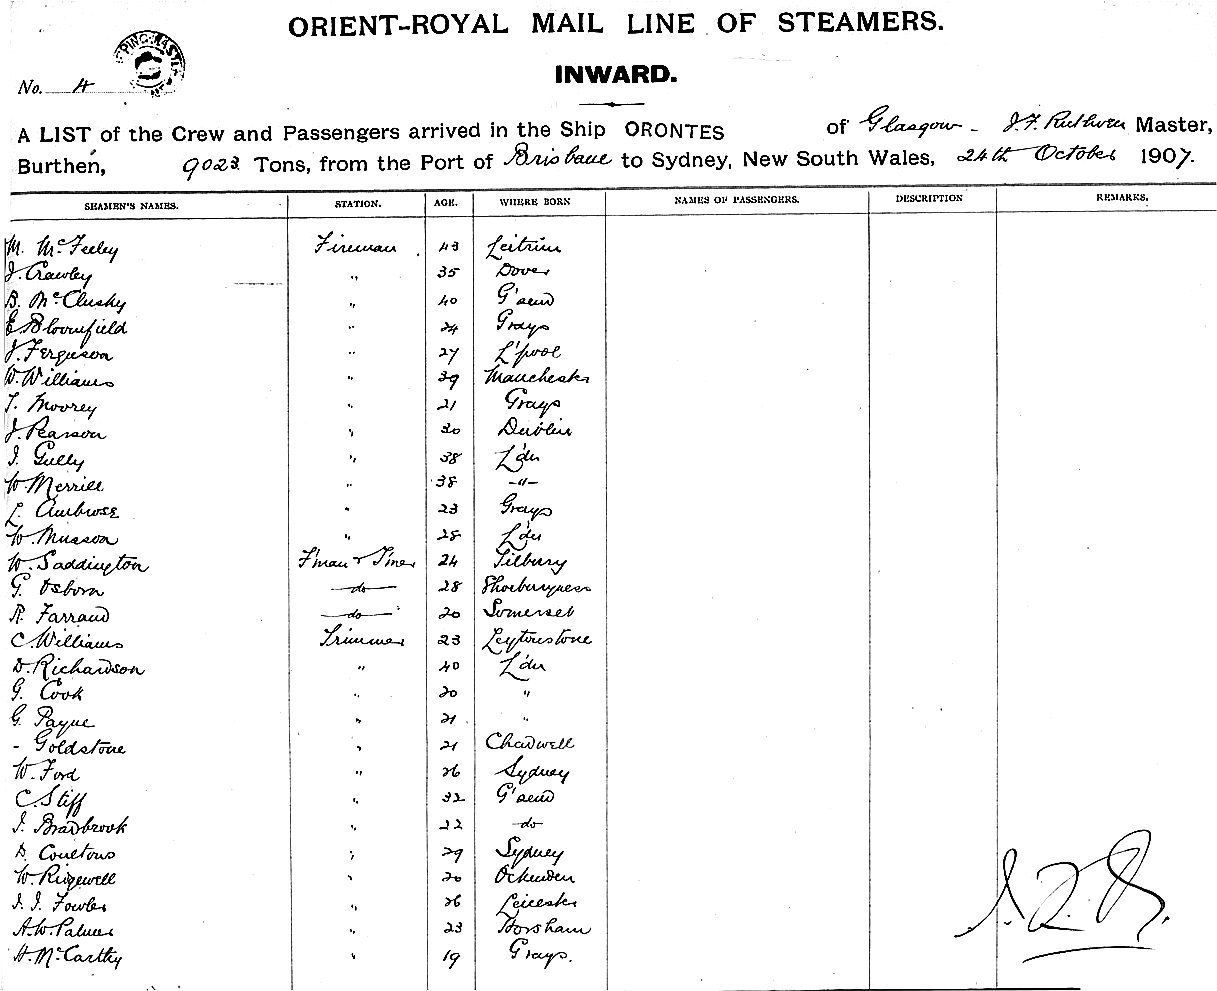 ORIENT-ROYAL MAIL LINE OF STEAMERS.
INWARD.
No. 4
A LIST of the Crew and Passengers arrived in the Ship ORONTES of Glasgow - J.F. Ruthven Master,
Burthen, 9023 Tons, from the Port of Brisbane to Sydney, New South Wales, 24th October 1907.
SEAMEN'S NAMES. STATION. AGE. WHERE BORN NAMES OF PASSENGERS. DESCRIPTION REMARKS.
M. McFeeley Fireman 43 Leitrim
J. Crawley " 35 Dover
B. McClusky " 40 G'send
E. Bloomfield " 24 Grays
J. Ferguson " 27 L'pool
W. Williams " 39 Manchester
T. Moorey " 21 Grays
J. Pearson " 30 Dublin
J. Gully " 38 L'dn
W. Merrill " 38 -"-
L. Ambrose " 23 Grays
W. Musson " 28 L'dn
W. Saddington F'man & T'mer 24 Tilbury
G. Osborn do 28 Shoeburyness
R. Farrand do 20 Somerset
C. Williams Trimmer 23 Leytonstone
D. Richardson " 40 L'dn
G. Cook " 20 "
G. Payne " 21 "
- Goldstone " 21 Chadwell
W. Ford " 26 Sydney
C. Stiff " 32 G'send
J. Bradbrook " 22 do
D. Coultons " 29 Sydney
W. Ridgewell " 20 Ockenden
J. J. Fowler " 26 Leicester
A.W. Palmer " 23 Horsham
H. McCarthy " 19 Grays.